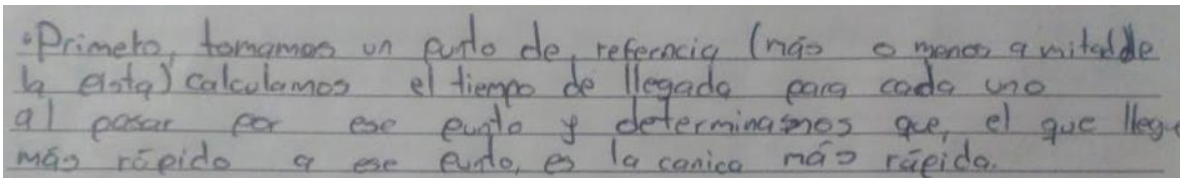 •Primero, tomamos un punto de referencia (más o menos a mitad de
la pista) calculamos el tiempo de llegada para cada uno
al pasar por ese punto y determinamos que, el que llegue
más rápido a ese punto, es la canica más rápida.